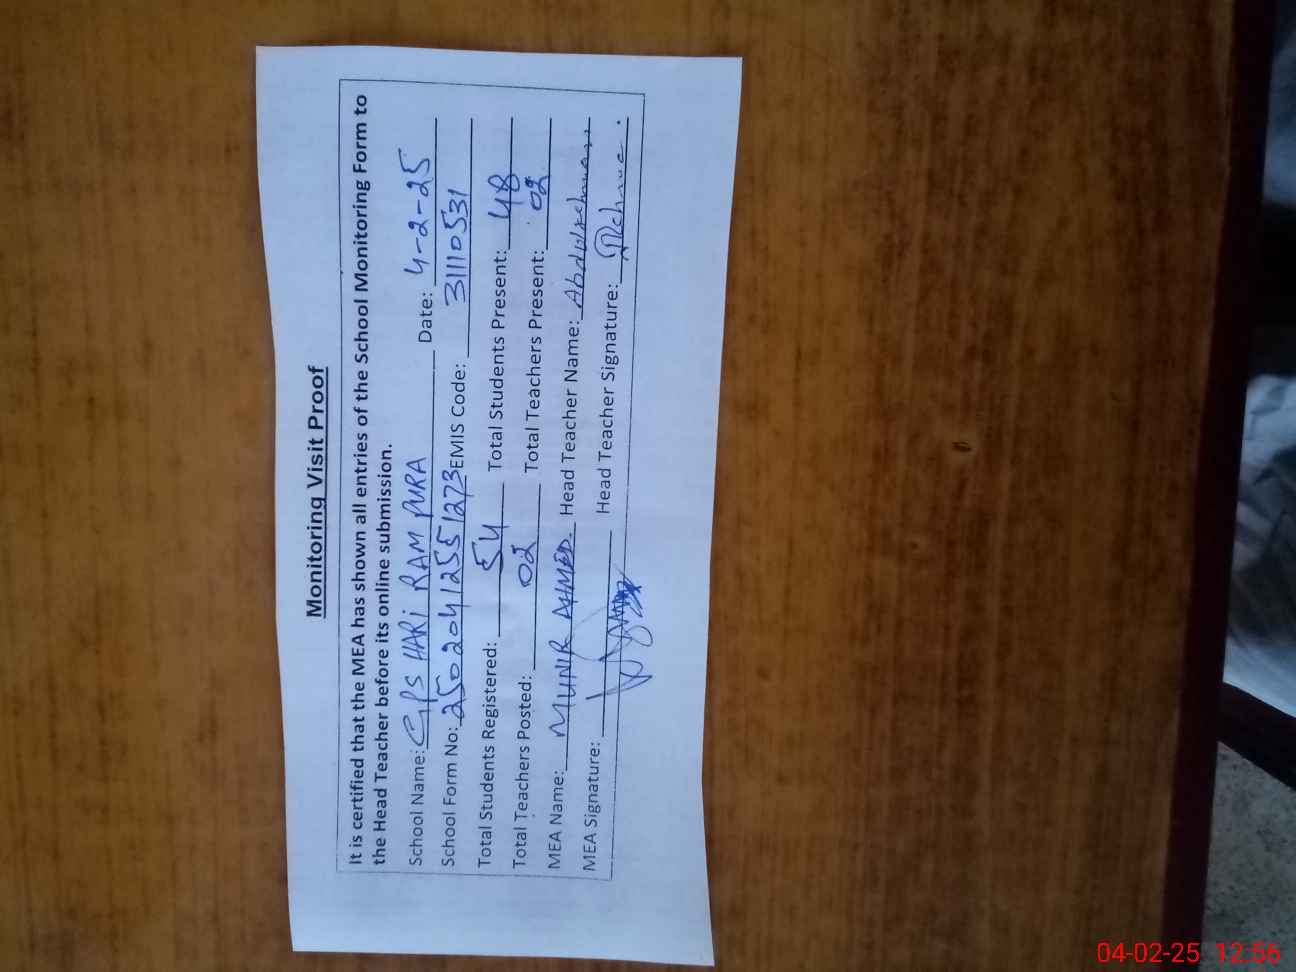 Monitoring Visit Proof
It is certified that the MEA has shown all entries of the School Monitoring Form to
the Head Teacher before its online submission.
School Name: GPS HARI RAM PURA Date: 4-2-25
School Form No: 25020412551273 EMIS Code: 31110531
Total Students Registered: 54 Total Students Present: 48
Total Teachers Posted: 02 Total Teachers Present: 02
MEA Name: MUNIR AHMED. Head Teacher Name: Abdulrehman
MEA Signature: Head Teacher Signature:
04-02-25 12:56